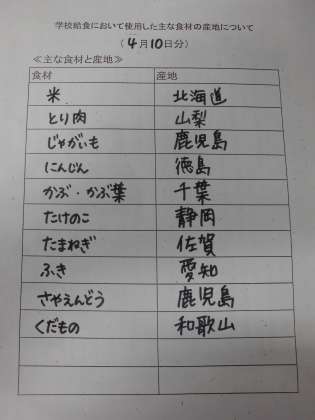 学校給食において使用した主な食材の産地について
(4月10日分)
≪主な食材と産地≫
食材 産地
米 北海道
とり肉 山梨
じゃがいも 鹿児島
にんじん 徳島
かぶ・かぶ葉 千葉
たけのこ 静岡
たまねぎ 佐賀
ふき 愛知
さやえんどう 鹿児島
くだもの 和歌山